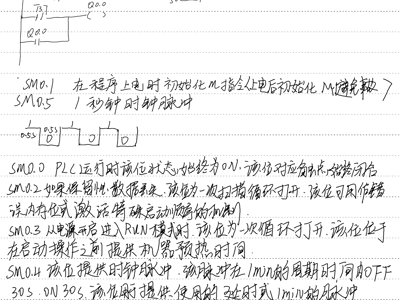 T37 Q0.0
Q0.0
SM0.1 在程序上电时初始化M指令(上电后初始化M
SM0.5 1秒钟时钟脉冲
1 0.5s 0.5s 0 1 0 1 0
SM0.0 PLC运行时该位状态始终为ON,该位对应触点始终闭合
SM0.2 如果保留性数据丢失,该位为一次扫描循环打开,该位可用作错
误内存位或激活特殊启动顺序的机制
SM0.3 从电源开启进入RUN模式时,该位为一次循环打开,该位位于
在启动操作之前提供机器预热时间
SM0.4 该位提供时钟脉冲,该脉冲在1min的周期时间内OFF
30s.ON 30s,该位时提供使用的延时或1min的脉冲